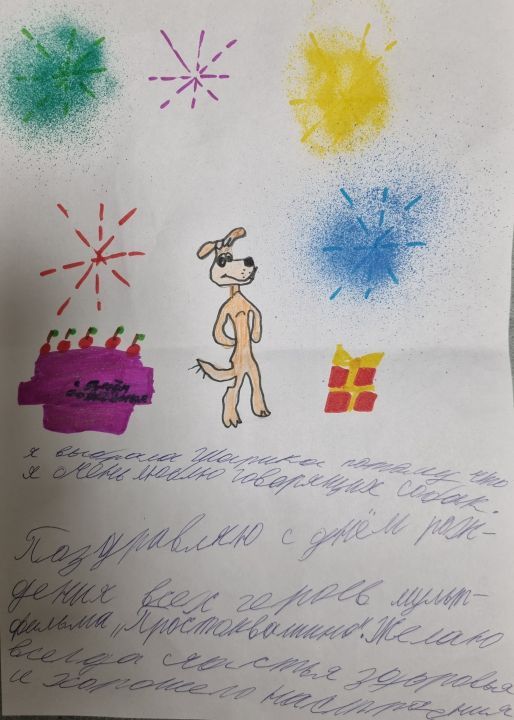 с днём
рождения
я выбрала Шарика потому что
я очень люблю говорящих собак.
Поздравляю с днём рож-
дения всех героев мульт-
фильма „Простоквашино". Желаю
всегда счастья здоровья
и хорошего настроения